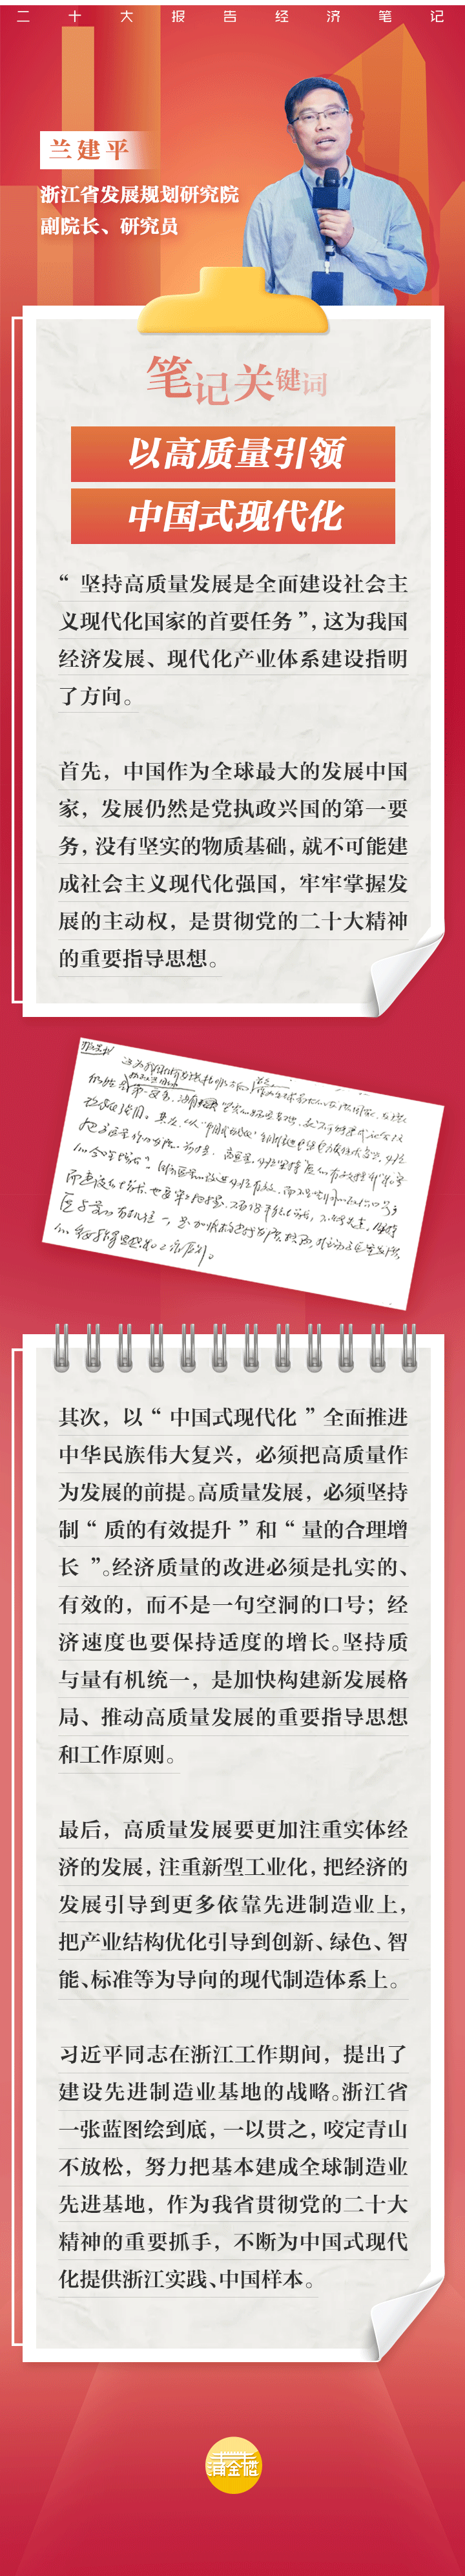 二十大报告经济笔记
兰建平
浙江省发展规划研究院
副院长、研究员
笔记关键词
以高质量引领
中国式现代化
“坚持高质量发展是全面建设社会主
义现代化国家的首要任务”，这为我国
经济发展、现代化产业体系建设指明
了方向。
首先，中国作为全球最大的发展中国
家，发展仍然是党执政兴国的第一要
务，没有坚实的物质基础，就不可能建
成社会主义现代化强国，牢牢掌握发
展的主动权，是贯彻党的二十大精神
的重要指导思想。
其次，以“中国式现代化”全面推进
中华民族伟大复兴，必须把高质量作
为发展的前提。高质量发展，必须坚持
制“质的有效提升”和“量的合理增
长”。经济质量的改进必须是扎实的、
有效的，而不是一句空洞的口号；经
济速度也要保持适度的增长。坚持质
与量有机统一，是加快构建新发展格
局、推动高质量发展的重要指导思想
和工作原则。
最后，高质量发展要更加注重实体经
济的发展，注重新型工业化，把经济的
发展引导到更多依靠先进制造业上，
把产业结构优化引导到创新、绿色、智
能、标准等为导向的现代制造体系上。
习近平同志在浙江工作期间，提出了
建设先进制造业基地的战略。浙江省
一张蓝图绘到底，一以贯之，咬定青山
不放松，努力把基本建成全球制造业
先进基地，作为我省贯彻党的二十大
精神的重要抓手，不断为中国式现代
化提供浙江实践、中国样本。
涌金楼